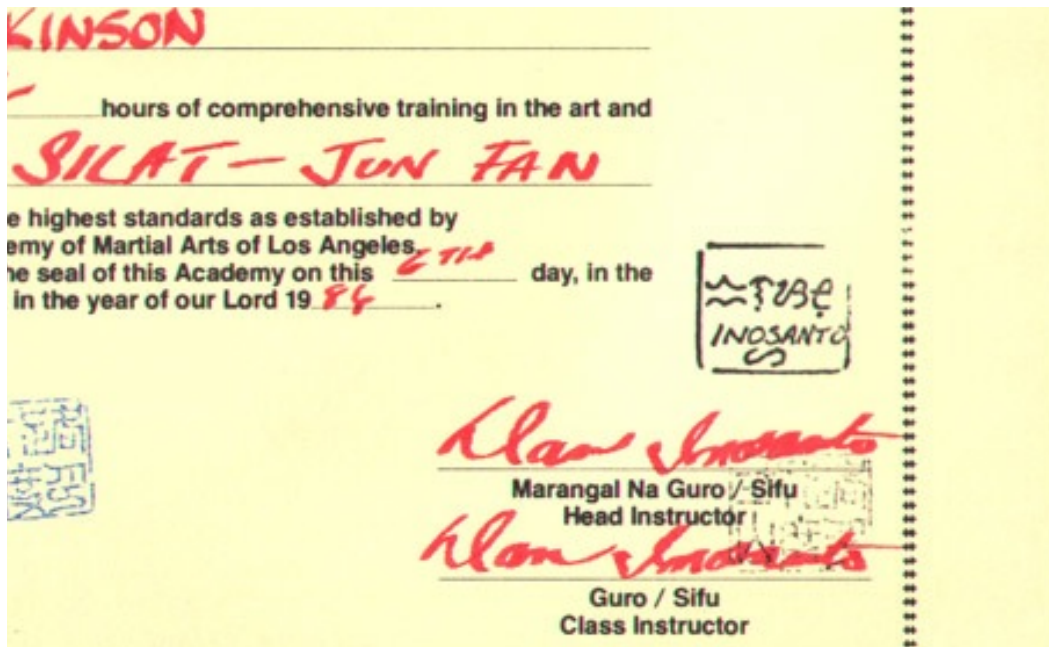 KINSON
hours of comprehensive training in the art and
SILAT - JUN FAN
e highest standards as established by
emy of Martial Arts of Los Angeles
ne seal of this Academy on this 6TH day, in the
in the year of our Lord 1986.
INOSANTO
Dan Inosanto
Marangal Na Guro / Sifu
Head Instructor
Dan Inosanto
Guro / Sifu
Class Instructor